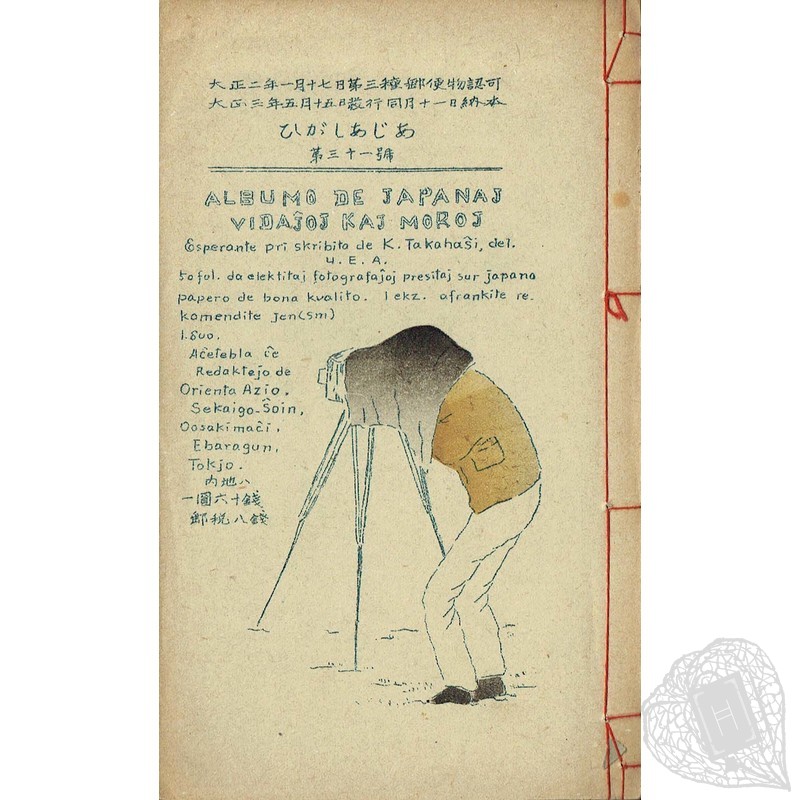 大正二年一月十七日第三種郵便物認可
大正三年五月十五日發行同月十一日納本
ひがしあじあ
第三十一號
ALBUMO DE JAPANAJ
VIDAĴOJ KAJ MOROJ
Esperante pri skribita de K. Takahaŝi, del.
U. E. A.
50 ful. da elektitaj fotografaĵoj presitaj sur japana
papero de bona kvalito. 1 ekz. afrankite re.
komendite jen(sm)
1.800.
Aĉetebla ĉe
Redaktejo de
Orienta Azio.
Sekaigo-Ŝoin,
Oosakimaĉi.
Ebaragun.
Tokjo.
内地ハ
一圓六十錢
郵税八錢
H